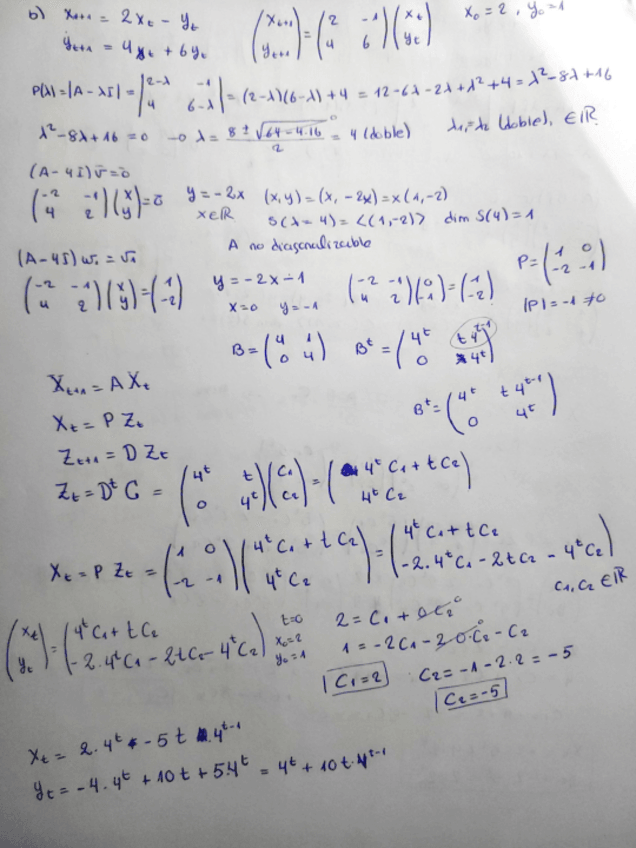 b) x_{t+1} = 2x_t - y_t
y_{t+1} = 4x_t + 6y_t
(x_{t+1} y_{t+1}) = (2 -1 4 6)(x_t y_t)
x_0 = 2, y_0 = 1
P(λ) = |A - λI| = |2-λ -1 4 6-λ| = (2-λ)(6-λ) + 4 = 12 - 6λ - 2λ + λ² + 4 = λ² - 8λ + 16
λ² - 8λ + 16 = 0 → λ = (8 ± √(64 - 4.16))/2 = 4 (doble) λ₁ = λ₂ (doble), ∈ ℝ
0
(A - 4I) v̄ = ō
(-2 -1 4 2)(x y) = ō
y = -2x
x ∈ ℝ
(x, y) = (x, -2x) = x(1, -2)
S(λ = 4) = <(1, -2)> dim S(4) = 1
A no diagonalizable
(A - 4I) w₁ = v₁
(-2 -1 4 2)(x y) = (1 -2)
y = -2x - 1
x = 0 y = -1
(-2 -1 4 2)(0 -1) = (1 -2)
P = (1 0 -2 -1)
|P| = -1 ≠ 0
B = (4 1 0 4) B^t = (4^t t4^{t-1} 0 4^t)
B^t = (4^t t4^{t-1} 0 4^t)
X_{t+1} = A X_t
X_t = P Z_t
Z_{t+1} = D Z_t
Z_t = D^t C = (4^t t 0 4^t)(C₁ C₂) = (4^t C₁ + t C₂ 4^t C₂)
X_t = P Z_t = (1 0 -2 -1)(4^t C₁ + t C₂ 4^t C₂) = (4^t C₁ + t C₂ -2.4^t C₁ - 2t C₂ - 4^t C₂)
C₁, C₂ ∈ ℝ
(x_t y_t) = (4^t C₁ + t C₂ -2.4^t C₁ - 2t C₂ - 4^t C₂)
t=0
x_0=2
y_0=1
2 = C₁ + 0C₂ 0
1 = -2C₁ - 2.0.C₂ 0 - C₂
C₁ = 2
C₂ = -1 - 2.2 = -5
C₂ = -5
x_t = 2.4^t - 5t 4^{t-1}
y_t = -4.4^t + 10t + 5.4^t = 4^t + 10t.4^{t-1}